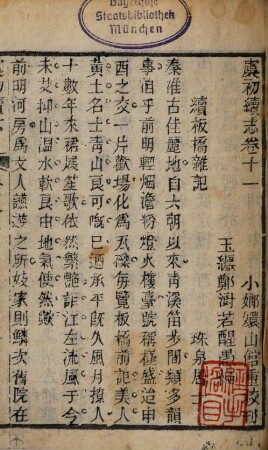 Bayerische
Staatsbibliothek
München
虞初續志卷十一
小嫏嬛山館重校刊
玉纚鄭澍若醒愚
續板橋雜記
珠泉居士
秦淮古佳麗地自六朝以來青溪笛步閒類多韻
事洎乎前明輕烟澹粉燈火樓臺號稱極盛迨申
酉之交一片歡場化爲瓦礫每覽板橋前記美人
黃土名士靑山良可嘅已邇承平旣久風月撩人
十數年來裙屐笙歌依然繁艶詐江左流風于今
未㷊抑山温水軟良由地氣使然歟
前明河房爲文人讌遊之所妓家則鱗次舊院在